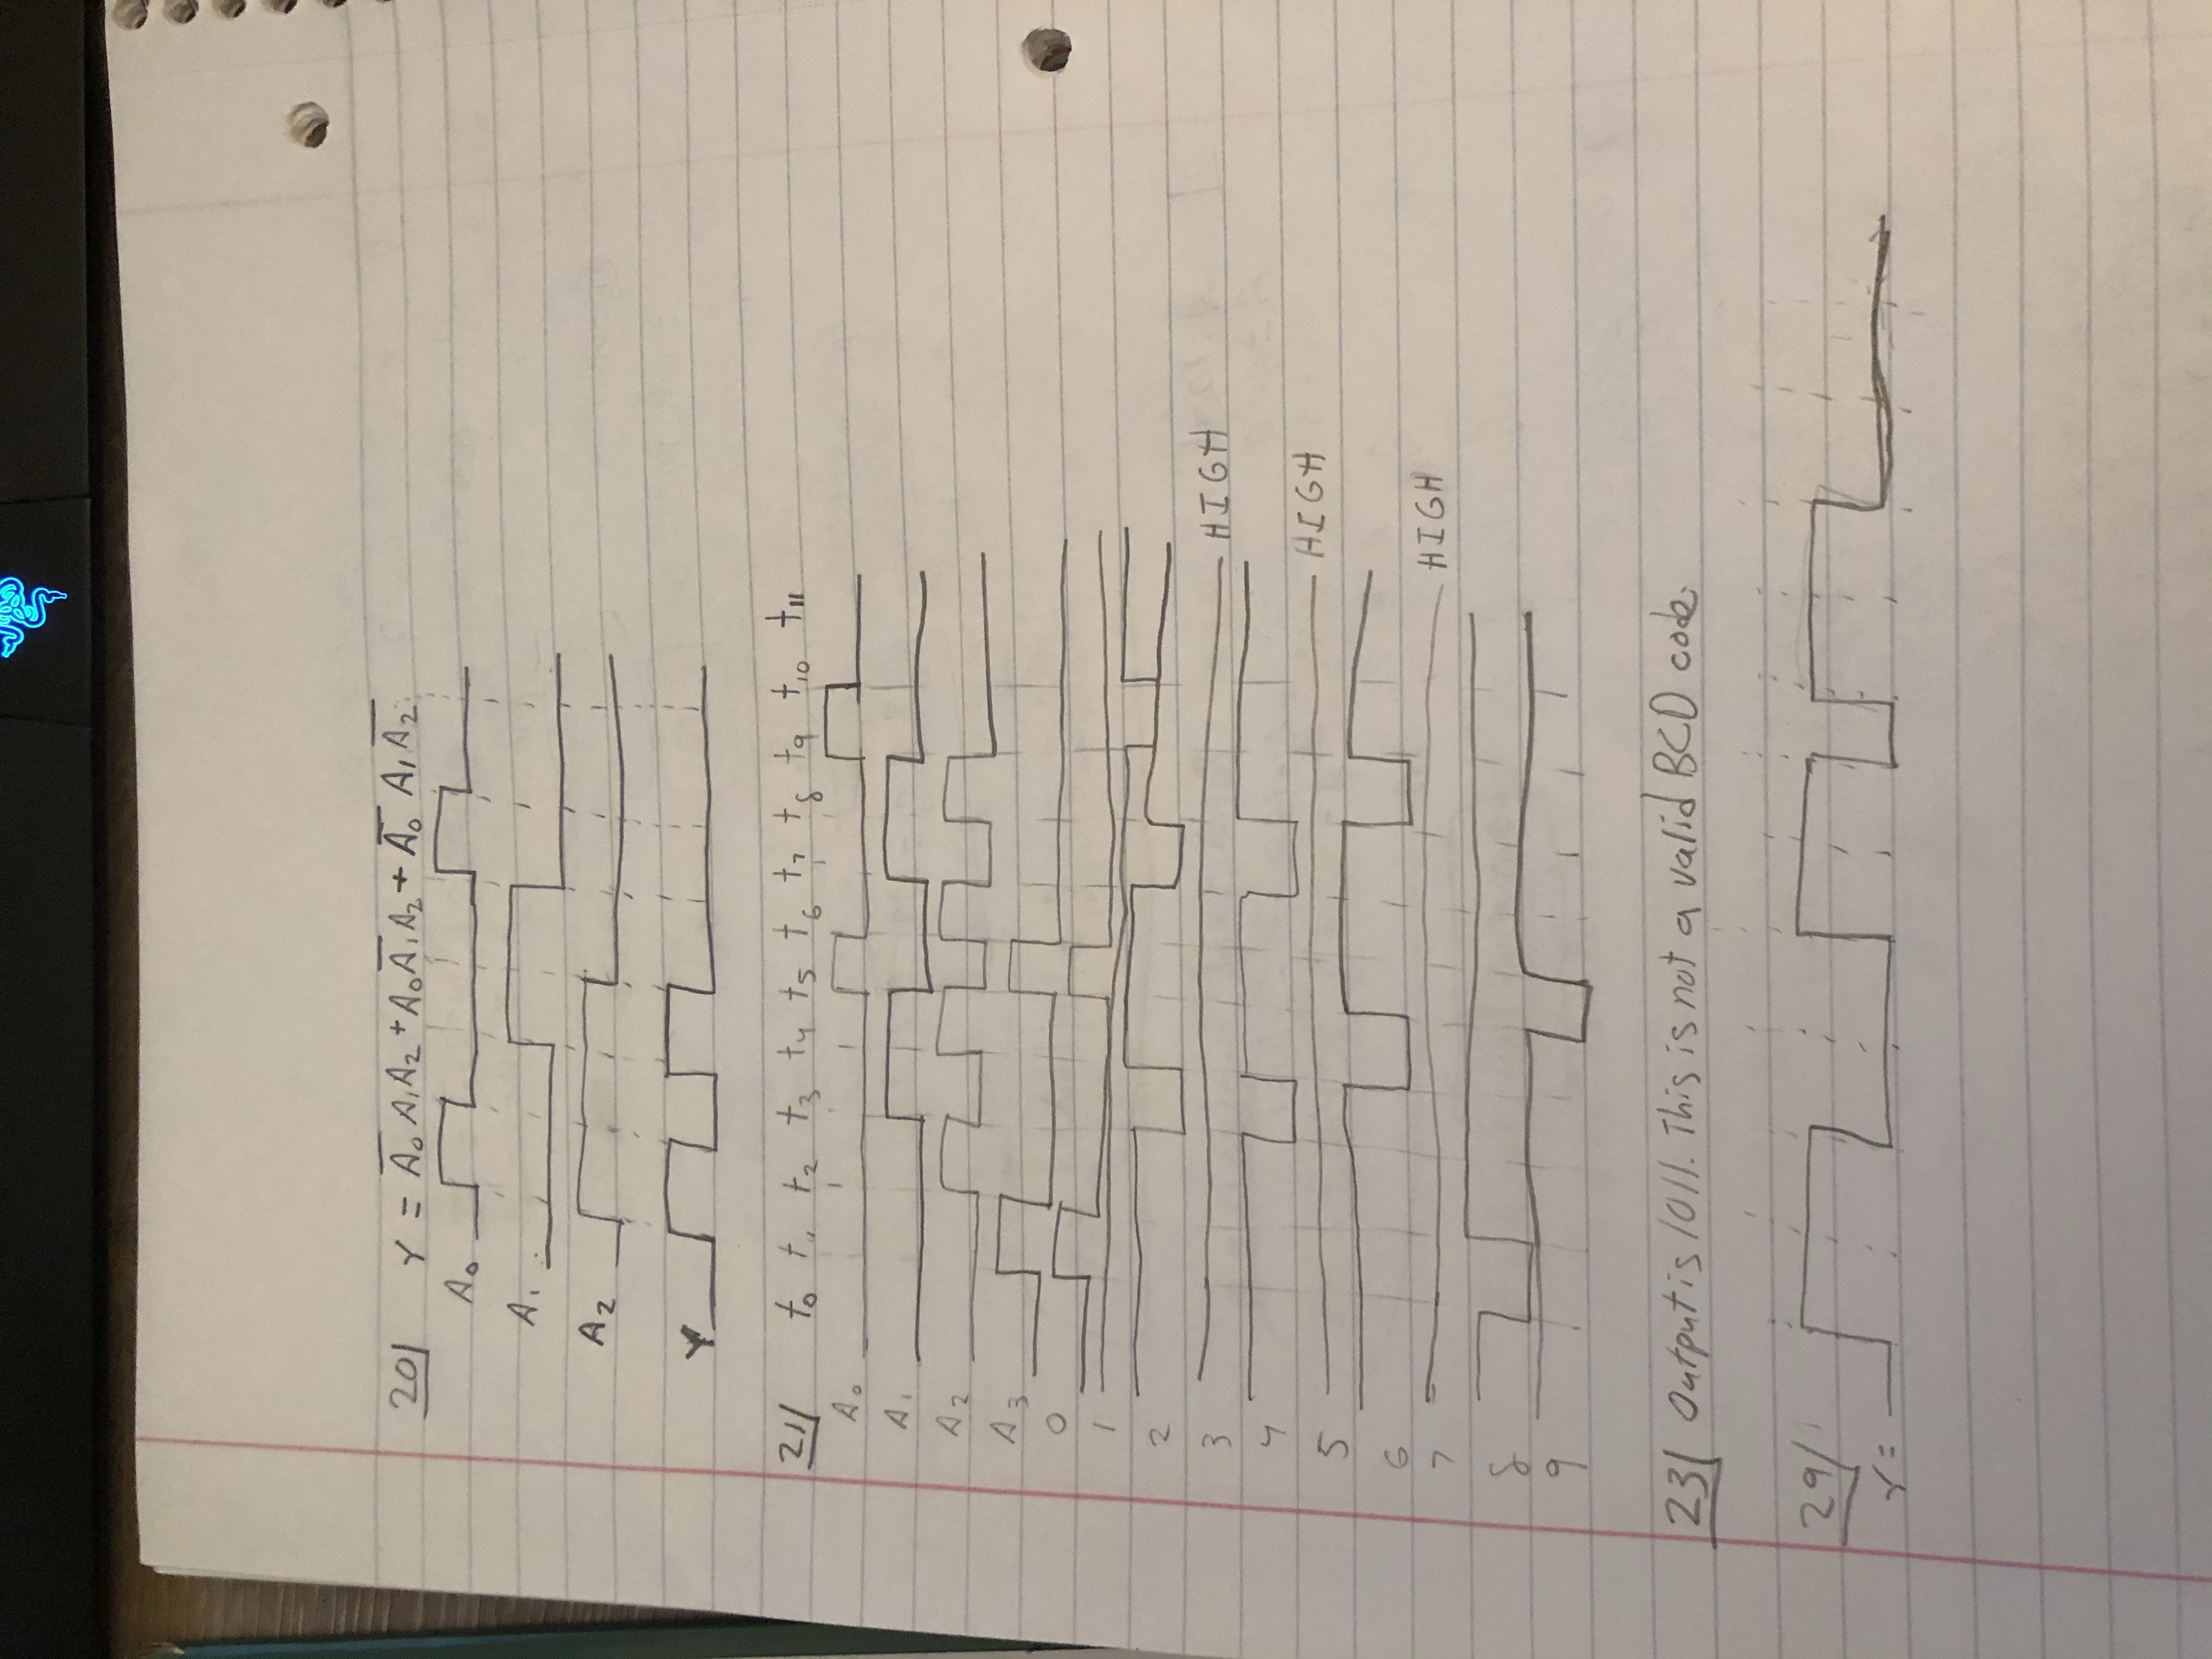 20/ Y = A̅₀ A₁A₂ + A₀A̅₁A₂ + A̅₀ A₁ A̅₂
A₀
A₁
A₂
Y
21/ t₀ t₁ t₂ t₃ t₄ t₅ t₆ t₇ t₈ t₉ t₁₀ t₁₁
A₀
A₁
A₂
A₃
0
1
2
3 HIGH
4
5 HIGH
6
7 HIGH
8
9
23/ Output is 1011. This is not a valid BCD code.
29/
Y =